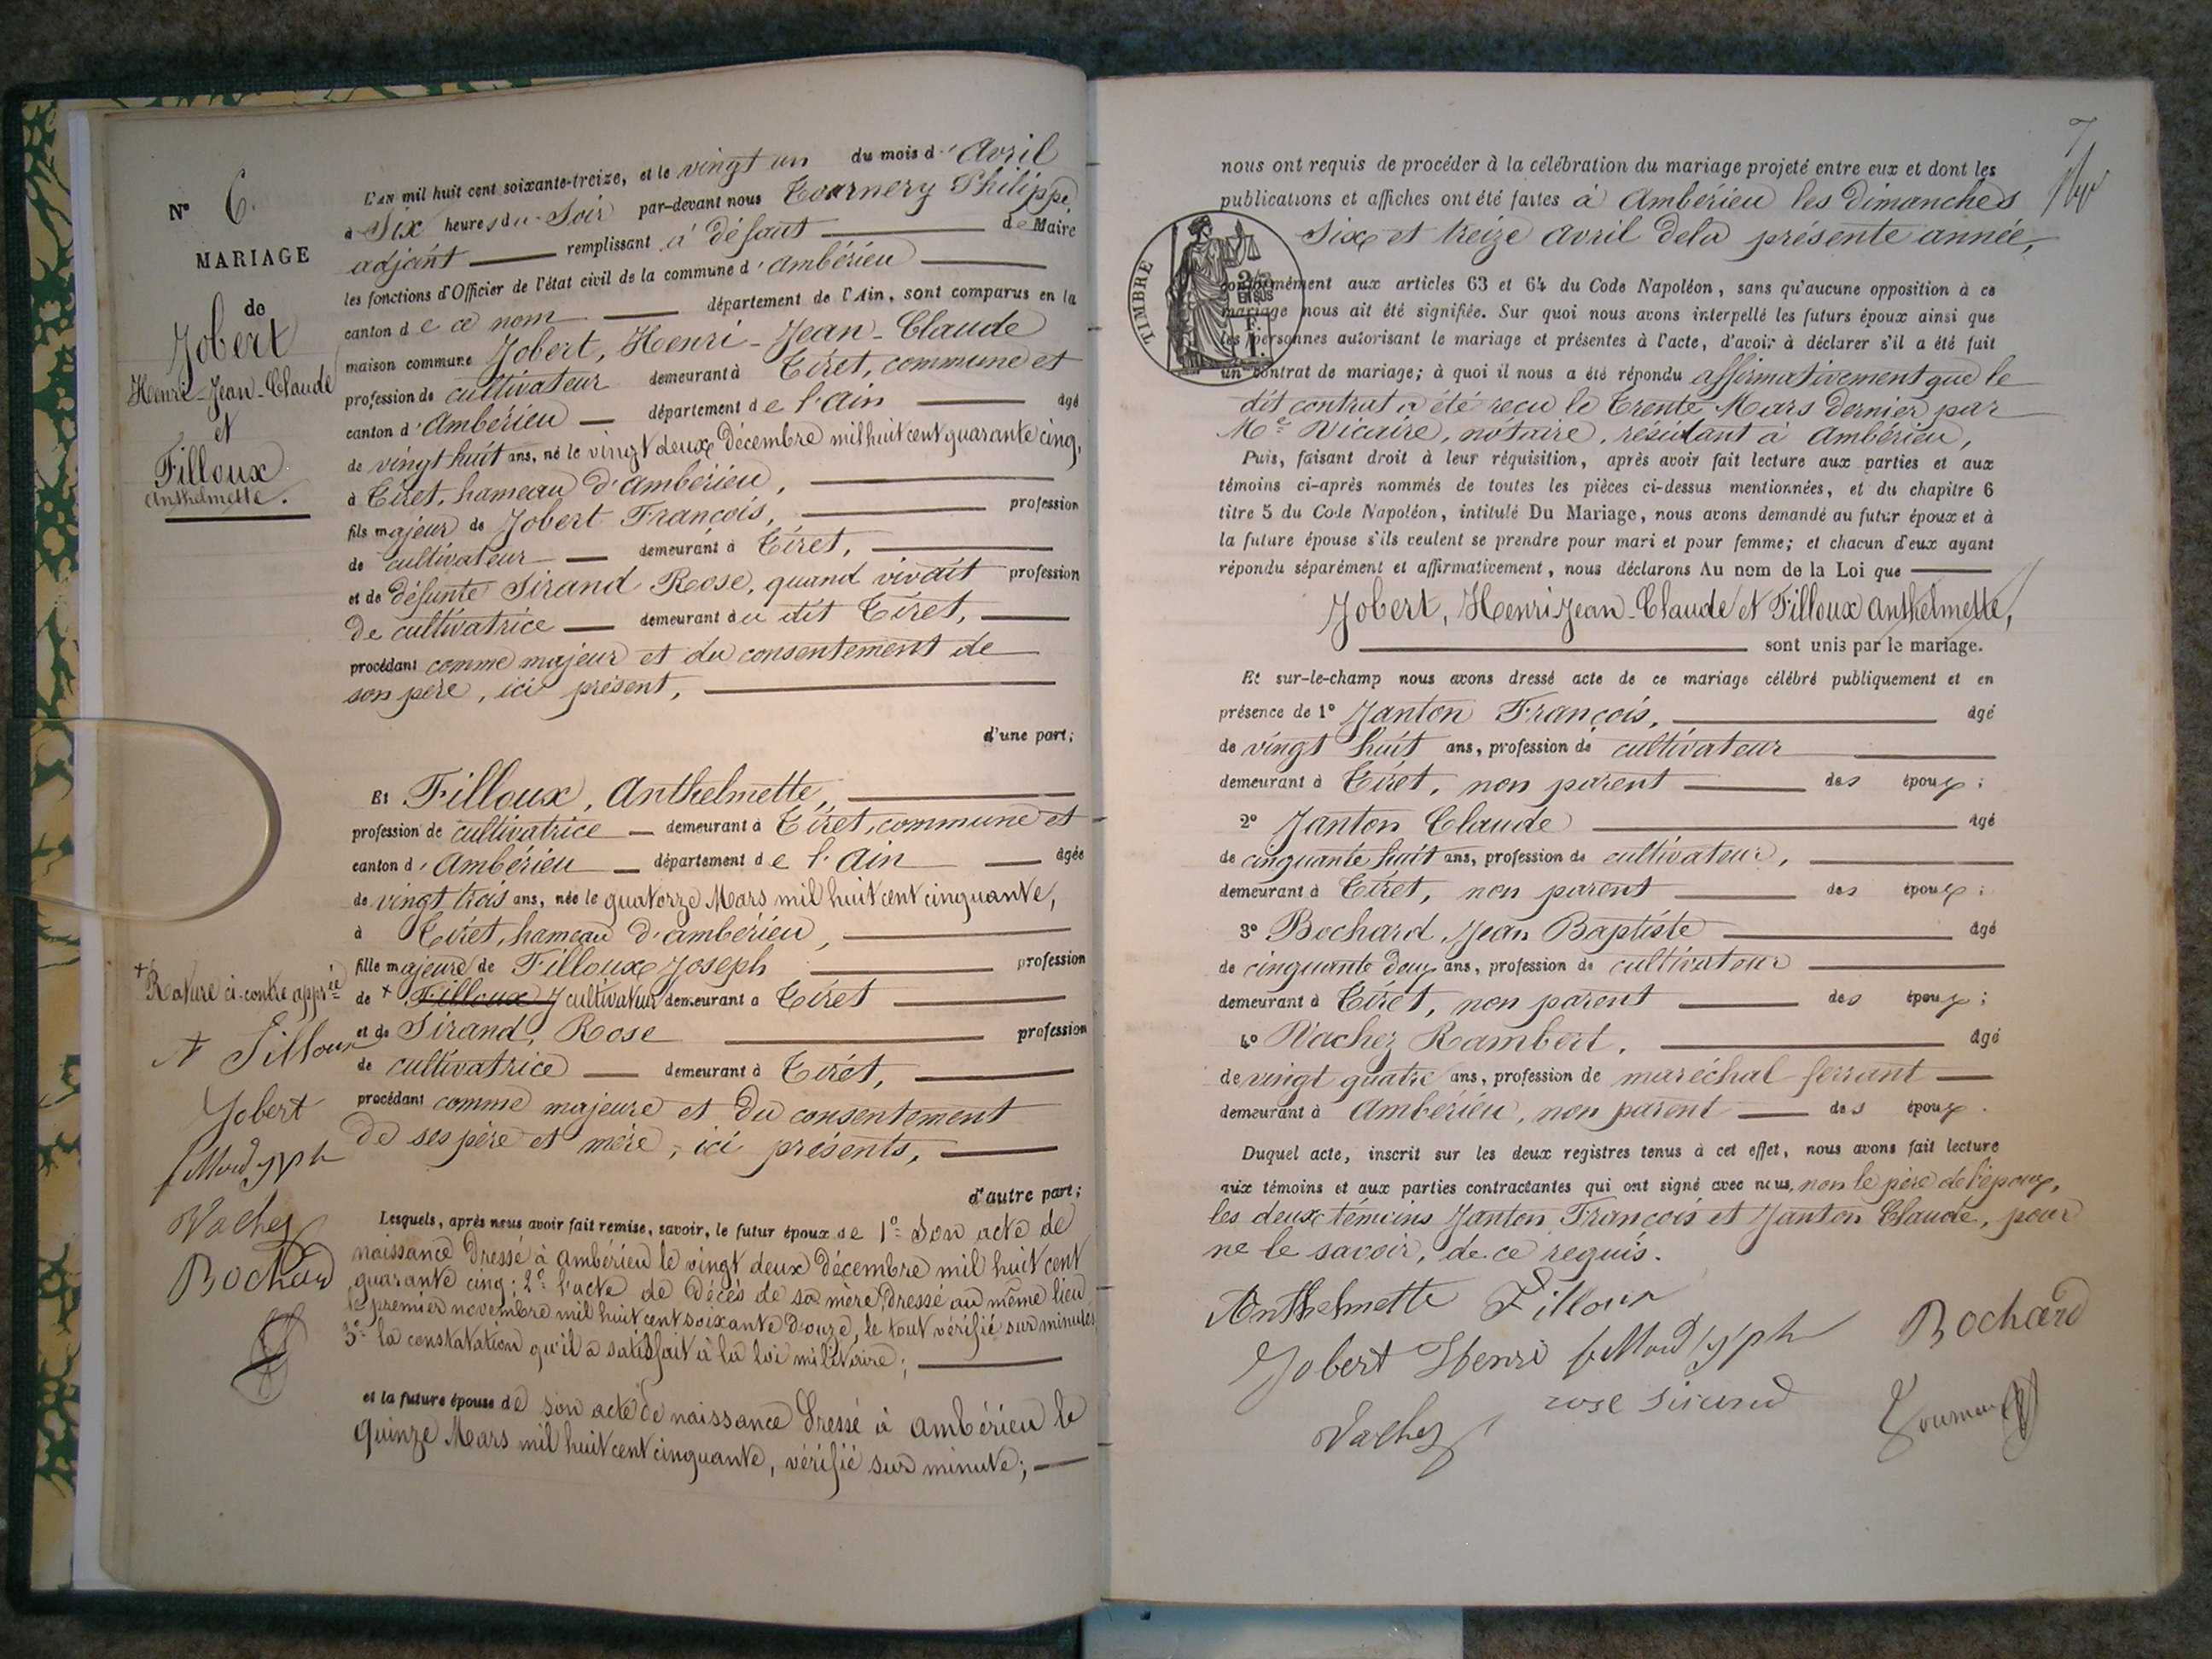 N° 6.
MARIAGE
de
Jobert
Henri-Jean-Claude
et
Filloux
Anthelmette.
L'an mil huit cent soixante-treize, et le vingt un du mois d'Avril
à Six heures du Soir par-devant nous Tournery Philippe,
adjoint remplissant à défaut de Maire
les fonctions d'Officier de l'état civil de la commune d'Ambérieu
canton de ce nom département de l'Ain, sont comparus en la
maison commune Jobert, Henri-Jean-Claude
profession de cultivateur demeurant à Tiret, commune et
canton d'Ambérieu département de l'Ain âgé
de vingt huit ans, né le vingt deux Décembre mil huit cent quarante cinq,
à Tiret, hameau d'Ambérieu,
fils majeur de Jobert François, profession
de cultivateur demeurant à Tiret,
et de défunte Sirand Rose, quand vivait profession
De cultivatrice demeurant au dit Tiret,
procédant comme majeur et du consentement de
son père, ici présent,
d'une part;
Et Filloux, Anthelmette,
profession de cultivatrice demeurant à Tiret, commune et
canton d'Ambérieu département de l'Ain âgée
de vingt trois ans, née le quatorze Mars mil huit cent cinquante,
à Tiret, hameau d'ambérieu,
fille majeure de Filloux Joseph profession
de + Filloux J cultivateur demeurant à Tiret
et de Sirand, Rose profession
de cultivatrice demeurant à Tiret,
procédant comme majeure et Du consentement
De ses père et mère, ici présents,
d'autre part;
+ Rature ci-contre appr.ée
A Filloux
Jobert
filloud jph
Vachez
Bochard
Lesquels, après nous avoir fait remise, savoir, le futur époux de 1° Son acte de
naissance Dressé à Ambérieu le vingt deux Décembre mil huit cent
quarante cinq; 2° l'acte de Décès de sa mère Dressé au même lieu
le premier novembre mil huit cent soixante Douze, le tout vérifié sur minutes
3° la constatation qu'il a satisfait à la loi militaire;
et la future épouse de son acte de naissance Dressé à Ambérieu le
Quinze Mars mil huit cent cinquante, vérifié sur minute;
7
nous ont requis de procéder à la célébration du mariage projeté entre eux et dont les
publications et affiches ont été faites à Ambérieu les dimanches
Six et treize avril de la présente année,
TIMBRE
conformément aux articles 63 et 64 du Code Napoléon, sans qu'aucune opposition à ce
mariage nous ait été signifiée. Sur quoi nous avons interpellé les futurs époux ainsi que
les personnes autorisant le mariage et présentes à l'acte, d'avoir à déclarer s'il a été fait
un contrat de mariage; à quoi il nous a été répondu affirmativement que le
dit contrat a été reçu le Trente Mars Dernier par
Me Vicaire, notaire, résidant à Ambérieu,
Puis, faisant droit à leur réquisition, après avoir fait lecture aux parties et aux
témoins ci-après nommés de toutes les pièces ci-dessus mentionnées, et du chapitre 6
titre 5 du Code Napoléon, intitulé Du Mariage, nous avons demandé au futur époux et à
la future épouse s'ils veulent se prendre pour mari et pour femme; et chacun d'eux ayant
répondu séparément et affirmativement, nous déclarons Au nom de la Loi que
Jobert, Henri Jean-Claude et Filloux Anthelmette,
sont unis par le mariage.
Et sur-le-champ nous avons dressé acte de ce mariage célébré publiquement et en
présence de 1° Janton François, âgé
de vingt huit ans, profession de cultivateur
demeurant à Tiret, non parent des époux;
2° Janton Claude âgé
de cinquante huit ans, profession de cultivateur,
demeurant à Tiret, non parent des époux;
3° Bochard, Jean Baptiste âgé
de cinquante deux ans, profession de cultivateur
demeurant à Tiret, non parent des époux;
4° Vachez Rambert, âgé
de vingt quatre ans, profession de maréchal ferrant
demeurant à Ambérieu, non parent des époux.
Duquel acte, inscrit sur les deux registres tenus à cet effet, nous avons fait lecture
aux témoins et aux parties contractantes qui ont signé avec nous, non le père de l'époux,
les deux témoins Janton François et Janton Claude, pour
ne le savoir, de ce requis.
Anthelmette Filloux
Jobert Henri filloud jph Bochard
rose sirand
Vachez